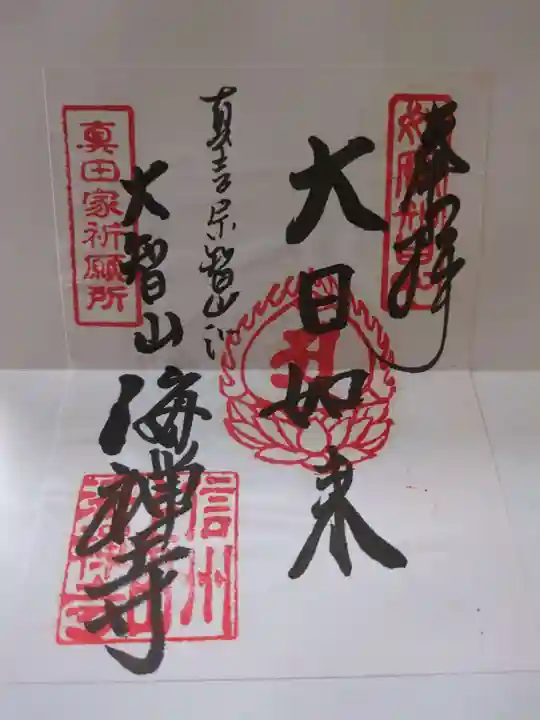 奉拝
大日如来
真言宗智山派
大智山
海禅寺
真田家祈願所
信州